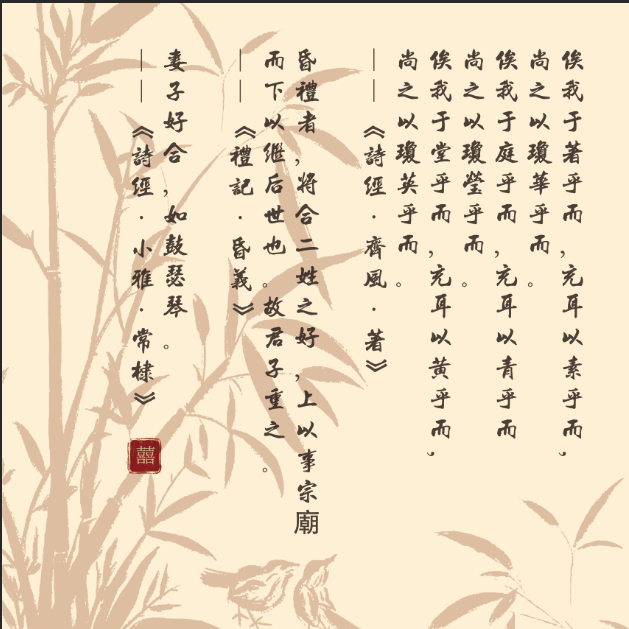 俟我于著乎而,充耳以素乎而,
尚之以瓊華乎而。
俟我于庭乎而,充耳以青乎而
尚之以瓊瑩乎而。
俟我于堂乎而,充耳以黄乎而,
尚之以瓊英乎而。
——《詩經·齊風·著》
昏禮者,将合二姓之好,上以事宗廟
而下以继后世也。故君子重之。
——《禮記·昏義》
妻子好合,如鼓瑟琴。
——《詩經·小雅·常棣》
囍